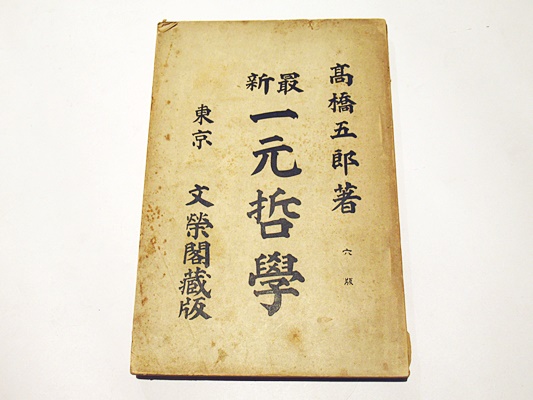 髙橋五郎著
六版
最新
一元哲學
東京
文榮閣藏版